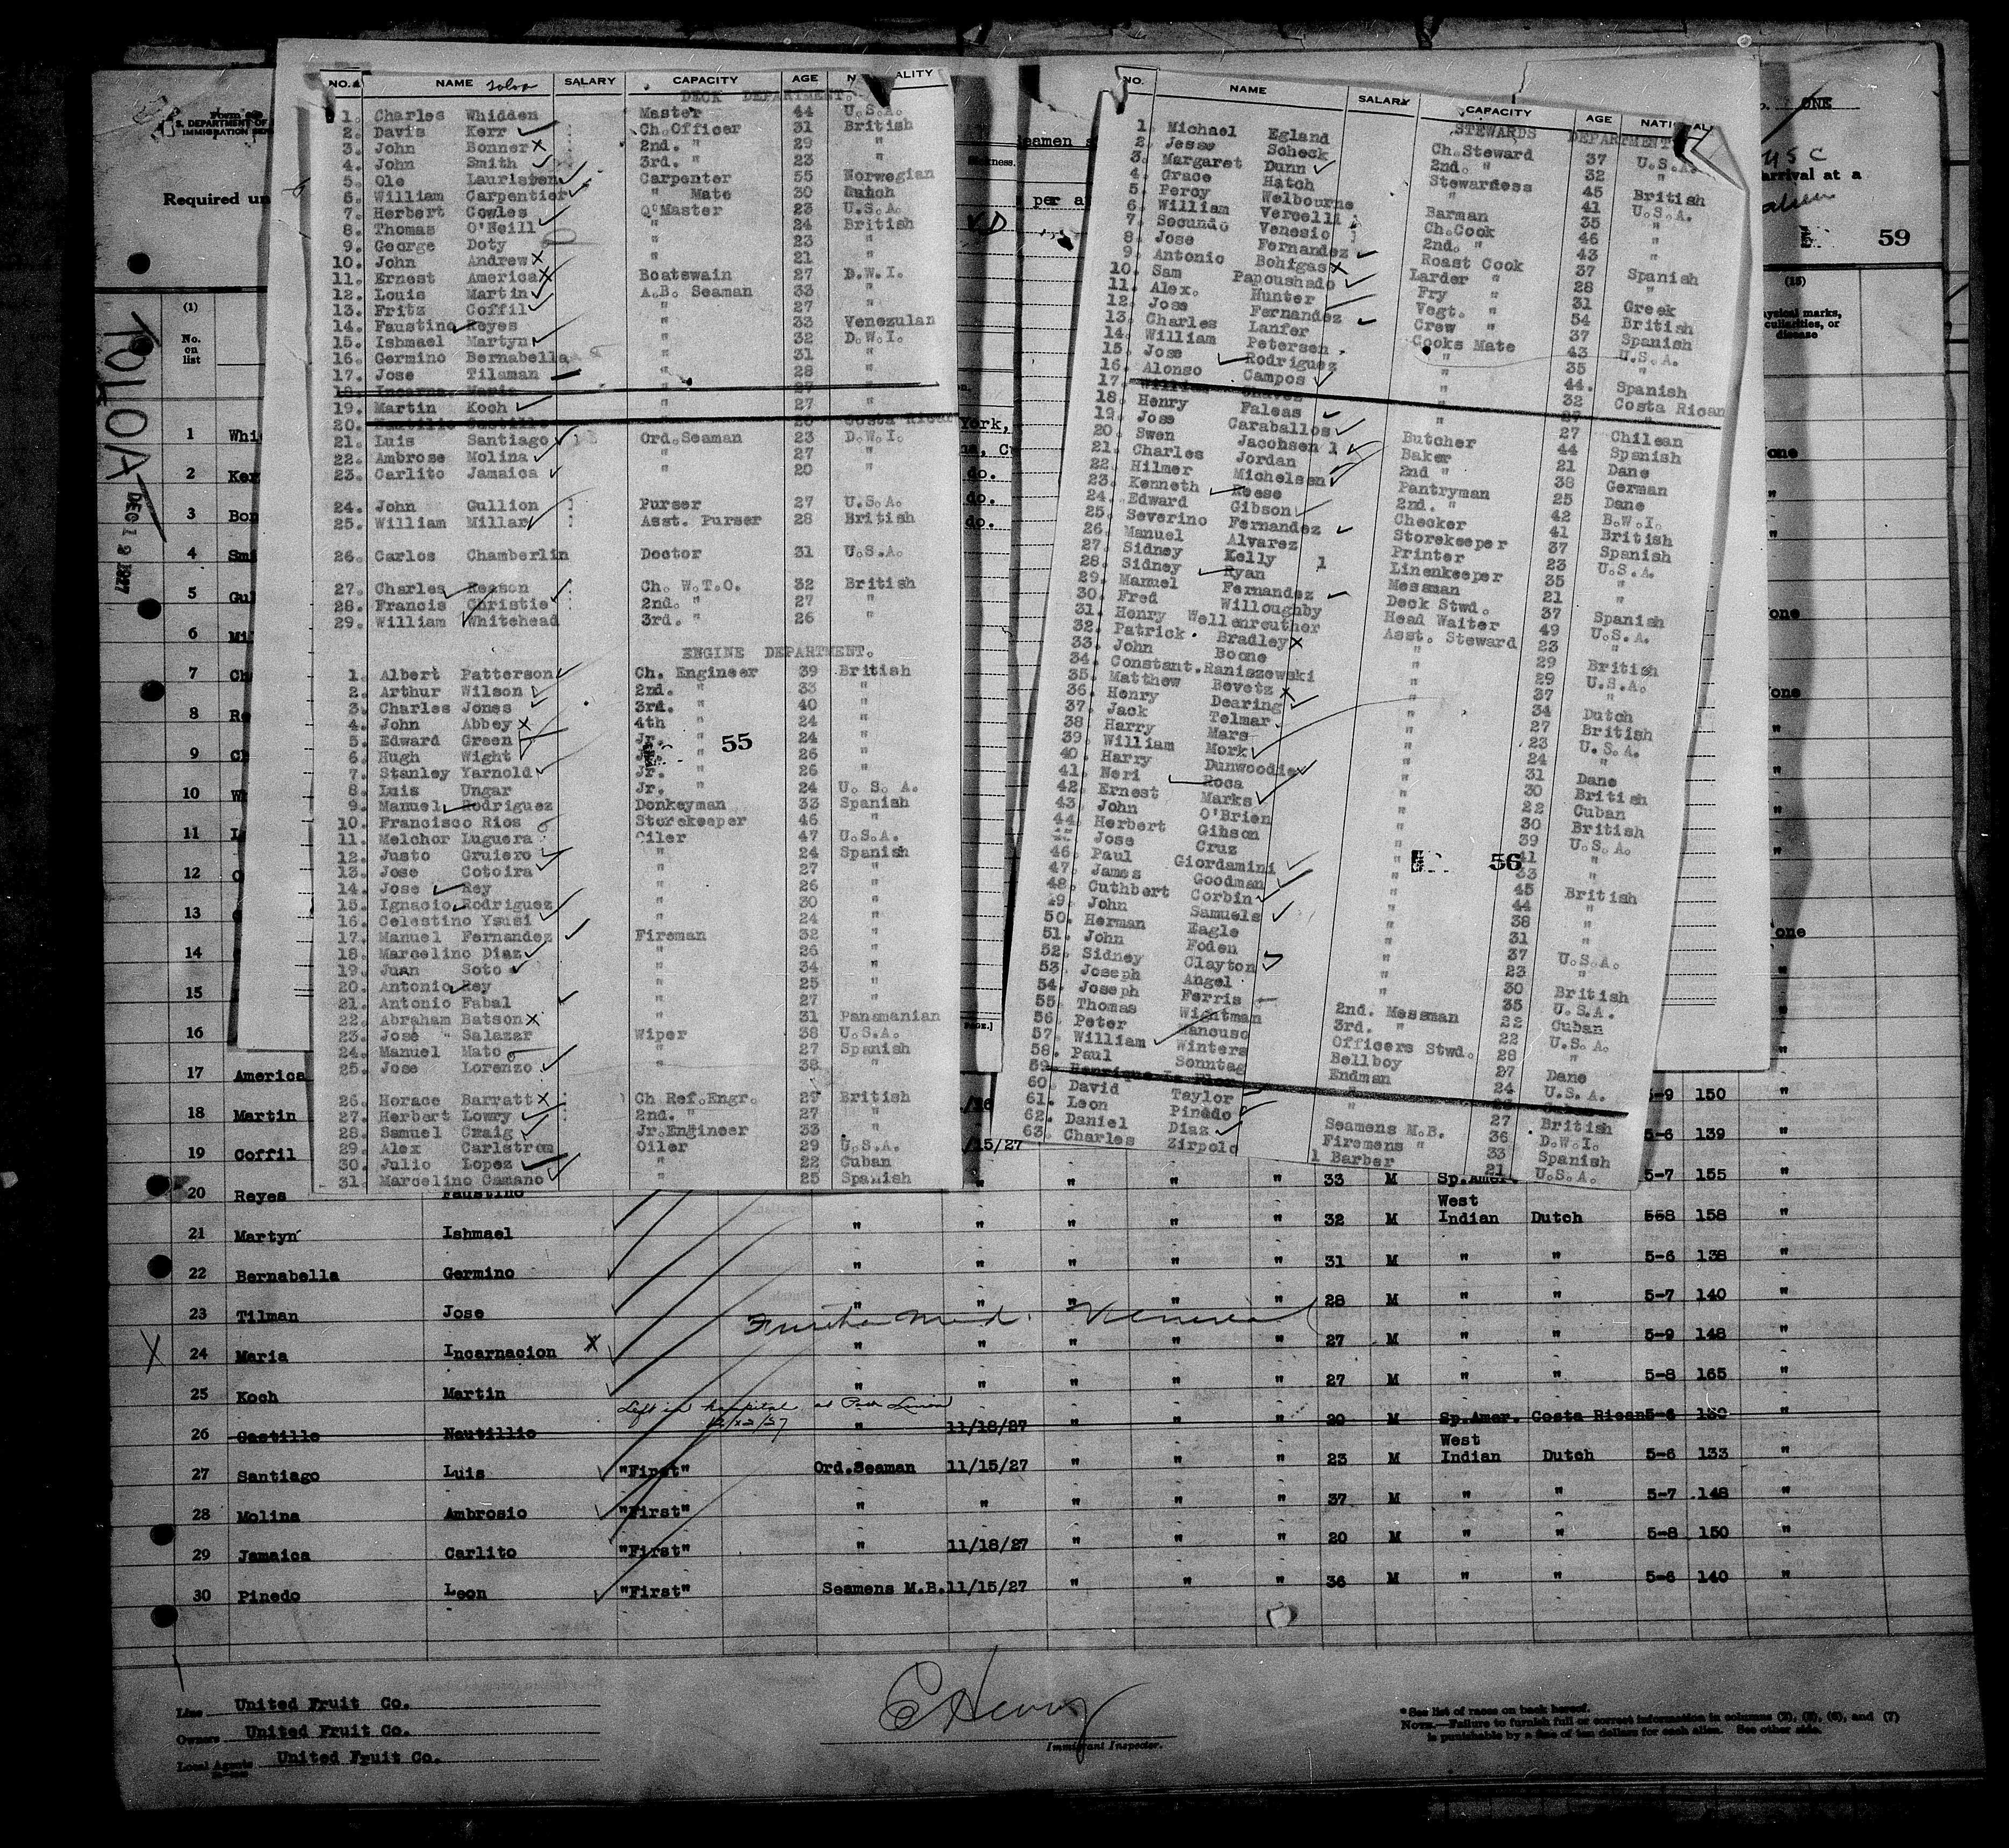 NO. NAME SALARY CAPACITY AGE ALITY
DECK DEPARTMENT.
1. Charles Whidden Master 44 U.S.A.
2. Davis Kerr Ch.Officer 31 British
3. John Bonner 2nd. " 29 "
4. John Smith 3rd. " 23 "
5. Ole Lauristen Carpenter 55 Norwegian
6. William Carpentier " Mate 30 Dutch
7. Herbert Cowles Q'Master 23 U.S.A.
8. Thomas O'Neill " 24 British
9. George Doty " 23 "
10. John Andrew " 21 "
11. Ernest America Boatswain 27 D.W.I.
12. Louis Martin A.B. Seaman 33 "
13. Fritz Coffil " 27 "
14. Faustino Reyes " 33 Venezulan
15. Ishmael Martyn " 32 D.W.I.
16. Germino Bernabella " 31 "
17. Jose Tilaman " 28 "
18. Incarna. Maria " 27 "
19. Martin Koch " 27 "
20. Nautilio Castillo " 20 Costa Rican
21. Luis Santiago Ord.Seaman 23 D.W.I.
22. Ambrose Molina " 27 "
23. Carlito Jamaica " 20 "
24. John Gullion Purser 27 U.S.A.
25. William Millar Asst. Purser 28 British
26. Carlos Chamberlin Doctor 31 U.S.A.
27. Charles Reason Ch. W.T.O. 32 British
28. Francis Christie 2nd. " 27 "
29. William Whitehead 3rd. " 26 "
ENGINE DEPARTMENT.
1. Albert Patterson Ch. Engineer 39 British
2. Arthur Wilson 2nd. " 33 "
3. Charles Jones 3rd. " 40 "
4. John Abbey 4th " 24 "
5. Edward Green Jr. " 24 "
55
6. Hugh Wight " 26 "
7. Stanley Yarnold Jr. " 26 "
8. Luis Ungar Jr. " 24 U. S. A.
9. Manuel Rodriguez Donkeyman 33 Spanish
10. Francisco Rios Storekeeper 46 "
11. Melchor Luguera Oiler 47 U.S.A.
12. Justo Gruiero " 24 Spanish
13. Jose Cotoira " 27 "
14. Jose Rey " 26 "
15. Ignacio Rodriguez " 30 "
16. Celestino Ysusi " 24 "
17. Manuel Fernandez Fireman 32 "
18. Marcelino Diaz " 26 "
19. Juan Soto " 34 "
20. Antonio Rey " 25 "
21. Antonio Fabal " 27 "
22. Abraham Batson " 31 Panamanian
23. Jose Salazar Wiper 38 U.S.A.
24. Manuel Mato " 27 Spanish
25. Jose Lorenzo " 38 "
26. Horace Barratt Ch Ref.Engr. 29 British
27. Herbert Lowry 2nd. " 27 "
28. Samuel Craig Jr.Engineer 33 "
29. Alex Carlstrom Oiler 29 U.S.A.
30. Julio Lopez " 22 Cuban
31. Marcelino Camano " 25 Spanish
NO. NAME SALARY CAPACITY AGE
STEWARDS DEPARTMENT
1. Michael Egland Ch.Steward 37 U.S.A.
2. Jesse Scheck 2nd. " 32 "
3. Margaret Dunn Stewardess 45 British
4. Grace Hatch " 41 U.S.A.
5. Percy Welbourne Barman 35 "
6. William Vercelli Ch.Cook 46 "
7. Secundo Venesio 2nd. " 43 "
8. Jose Fernandez Roast Cook 37 Spanish
9. Antonio Bohigas Larder " 28 "
10. Sam Papoushado Fry " 31 Greek
11. Alex. Hunter Vegt. " 54 British
12. Jose Fernandez Crew " 37 Spanish
13. Charles Lanfer Cooks Mate 43 U.S.A.
14. William Petersen " 35 "
15. Jose Rodriguez " 44. Spanish
16. Alonso Campos " 32 Costa Rican
17. " 27 "
18. Henry Faleas " 27 Chilean
19. Jose Caraballos Butcher 44 Spanish
20. Swen Jacohsen 1 Baker 21 Dane
21. Charles Jordan 2nd " 38 German
22. Hilmer Michelsen Pantryman 25 Dane
23. Kenneth Reese 2nd. " 42 B.W.I.
24. Edward Gibson Checker 41 British
25. Severino Fernandez Storekeeper 37 Spanish
26. Manuel Alvarez Printer 23 U.S.A.
27. Sidney Kelly 1 Linenkeeper 35 "
28. Sidney Ryan Messman 21 "
29. Manuel Fernandez Deck Stwd. 37 Spanish
30. Fred Willoughby Head Waiter 49 U.S.A.
31. Henry Wellenreuther Asst. Steward 23 "
32. Patrick Bradley " 29 British
33. John Boone " 29 U.S.A.
34. Constant.Raniszewski " 37 "
35. Matthew Bevetz " 34 Dutch
36. Henry Dearing " 27 British
37. Jack Telmar " 23 U.S.A.
38. Harry Mars " 24 "
39. William Mork " 31 Dane
40. Harry Dunwoodie " 30 British
41. Neri Roca " 22 Cuban
42. Ernest Marks " 30 British
43. John O'Brien " 39 U.S.A.
44. Herbert Gibson " 41 "
Jose Cruz " 33 "
56
46. Paul Giordamini " 45 British
47. James Goodman " 44 "
48. Cuthbert Corbin " 38 "
49. John Samuels " 31 "
50. Herman Eagle " 37 U.S.A.
51. John Foden " 23 "
52. Sidney Clayton " 30 British
53. Joseph Angel " 35 U.S.A.
54. Joseph Ferris 2nd. Messman 22 Cuban
55. Thomas Wightman 3rd. " 22 U.S.A.
56. Peter Mancuso Officers Stwd. 28 "
57. William Winters Bellboy 27 Dane
58. Paul Sonntag Endman 24 U.S.A.
59. Henrique La Flor
60. David Taylor " 27 British
61. Leon Pinedo Seamens M.B. 36 D.W.I.
62. Daniel Diaz Firemens " 33 Spanish
63. Charles Zirpolo 1 Barber 21 U.S.A.
ONE
59
Required un
arrival at a
per a
TOLOA
DEC 12 1927
(1)
No. on list
(15)
disease
1 Whi
2 Ker
3 Bon
4 Smi
5 Gul
6 Mil
7 Ch
8 Re
9 Ch
10 Wh
11
12
13
14
15
16
17 America 5-9 150 "
18 Martin 5-6 139 "
19 Coffil /15/27 5-7 155 "
20 Reyes Faustino " " " " 33 M Sp.Amer.
21 Martyn Ishmael " " " " " 32 M West Indian Dutch 5-8 158 "
22 Bernabella Germino " " " " " 31 M " " 5-6 138 "
23 Tilman Jose " " " " " 28 M " " 5-7 140 "
24 Maria Incarnacion X " " " " " 27 M " " 5-9 148 "
25 Koch Martin " " " " " 27 M " " 5-8 165 "
Left in hospital at Port Limon
26 Castillo Nautillio " 11/18/27 " " " 20 M Sp.Amer. Costa Rican 5-6 130 "
27 Santiago Luis "First" Ord.Seaman 11/15/27 " " " 23 M West Indian Dutch 5-6 133 "
28 Molina Ambrosio "First" " " " " " 37 M " " 5-7 148 "
29 Jamaica Carlito "First" " 11/18/27 " " " 20 M " " 5-8 150 "
30 Pinedo Leon "First" Seamens M.B. 11/15/27 " " " 36 M " " 5-6 140 "
Line United Fruit Co.
Owners United Fruit Co.
Local Agents United Fruit Co.
E Henry
Immigrant Inspector.
*See list of races on back hereof.
NOTE.—Failure to furnish full or correct information in columns (2), (3), (6), and (7)
is punishable by a fine of ten dollars for each alien. See other side.